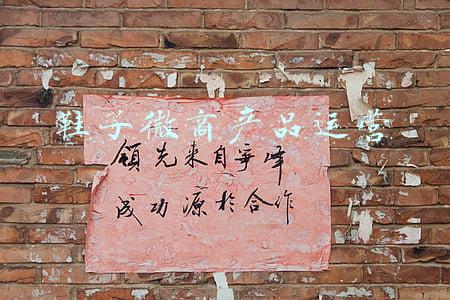 鞋子微商产品运营
领先来自争峰
成功源於合作